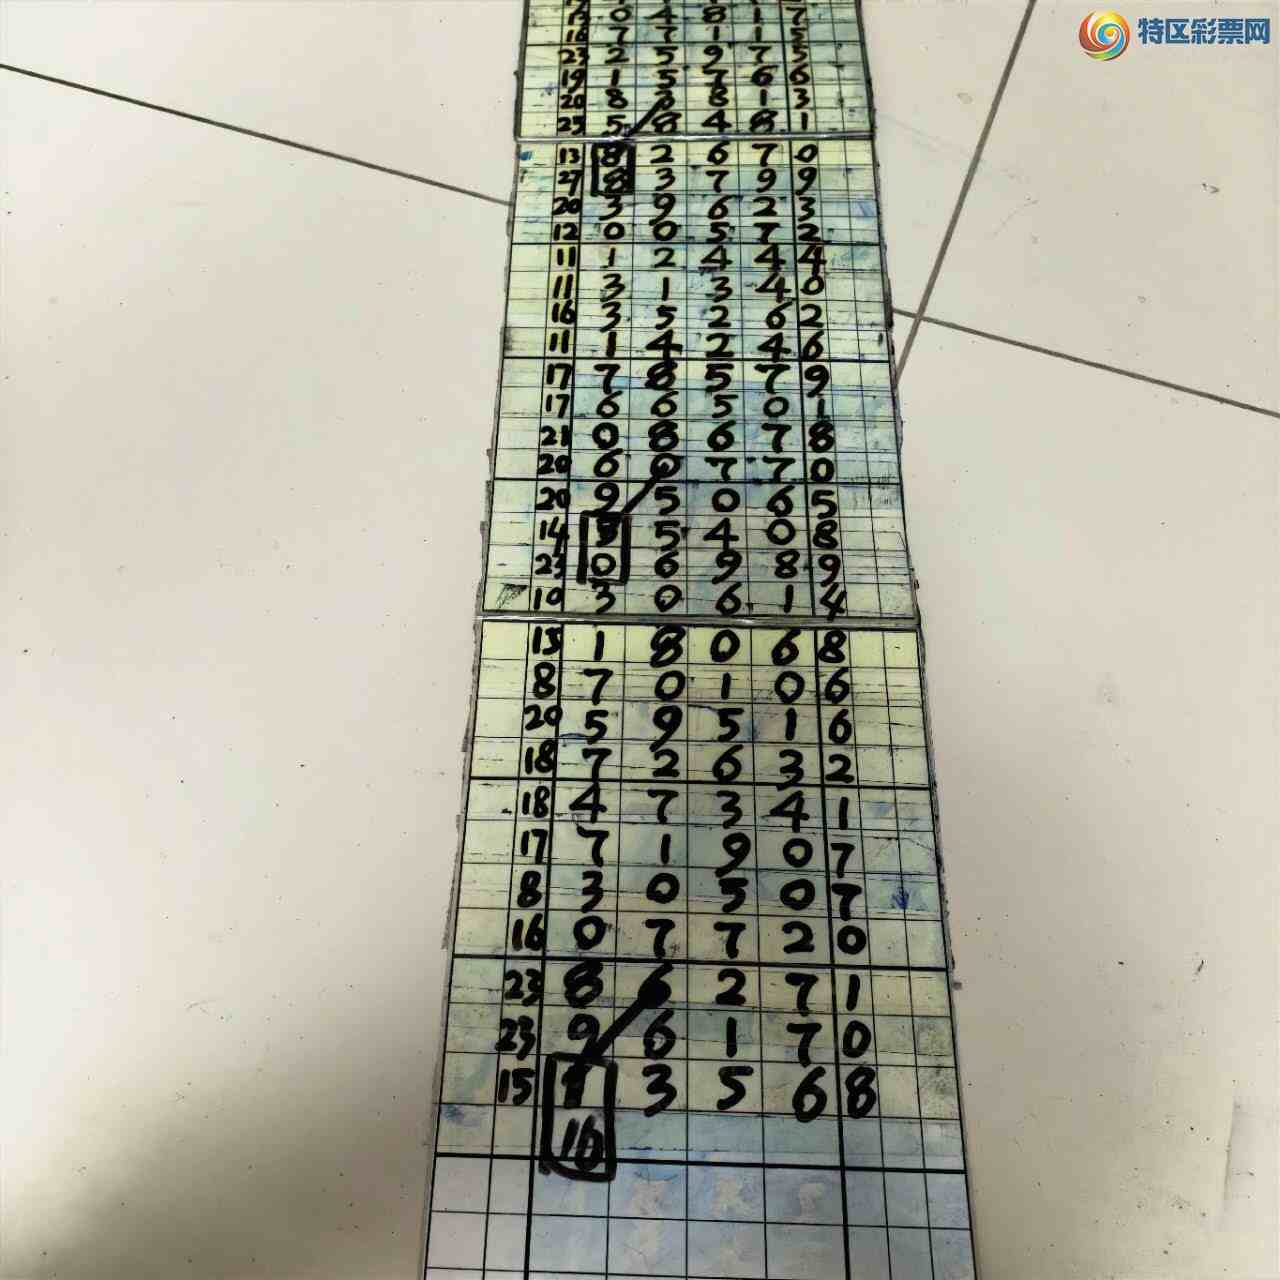 特区彩票网
12 0 4 8 1 7
16 7 7 1 1 5
23 2 5 9 7 5
19 1 5 7 6 6
20 8 3 8 1 3
25 5 8 4 8 1
13 8 2 6 7 0
27 8 3 7 9 9
20 3 9 6 2 3
12 0 0 5 7 2
11 1 2 4 4 4
11 3 1 3 4 0
16 3 5 2 6 2
11 1 4 2 4 6
17 7 8 5 7 9
17 6 6 5 0 1
21 0 8 6 7 8
20 6 0 7 7 0
20 9 5 0 6 5
14 5 5 4 0 8
23 0 6 9 8 9
10 3 0 6 1 4
15 1 8 0 6 8
8 7 0 1 0 6
20 5 9 5 1 6
18 7 2 6 3 2
18 4 7 3 4 1
17 7 1 9 0 7
8 3 0 5 0 7
16 0 7 7 2 0
23 8 6 2 7 1
23 9 6 1 7 0
15 1 3 5 6 8
16